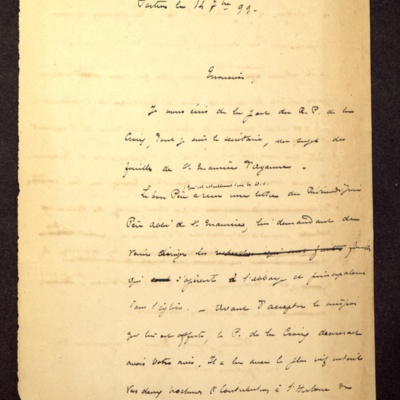 Poitiers le 14 7bre 99.
Monsieur,
Je vous écris de la part du R. P. de la
Croix, dont je suis le secrétaire, au sujet des
fouilles de St Maurice d'Agaune.
Le bon Père a reçu une lettre du Révérendissime
Père abbé de St Maurice, lui demandant de
venir diriger les recherches qui sont faites fouilles
qui sont s'opèrent à l'abbaye et principalement
dans l'église. — Avant d'accepter la mission
qui lui est offerte, le P. de la Croix désirerait
avoir votre avis. Il a lu avec le plus vif intérêt
vos deux brochures et Contribution à l'histoire de